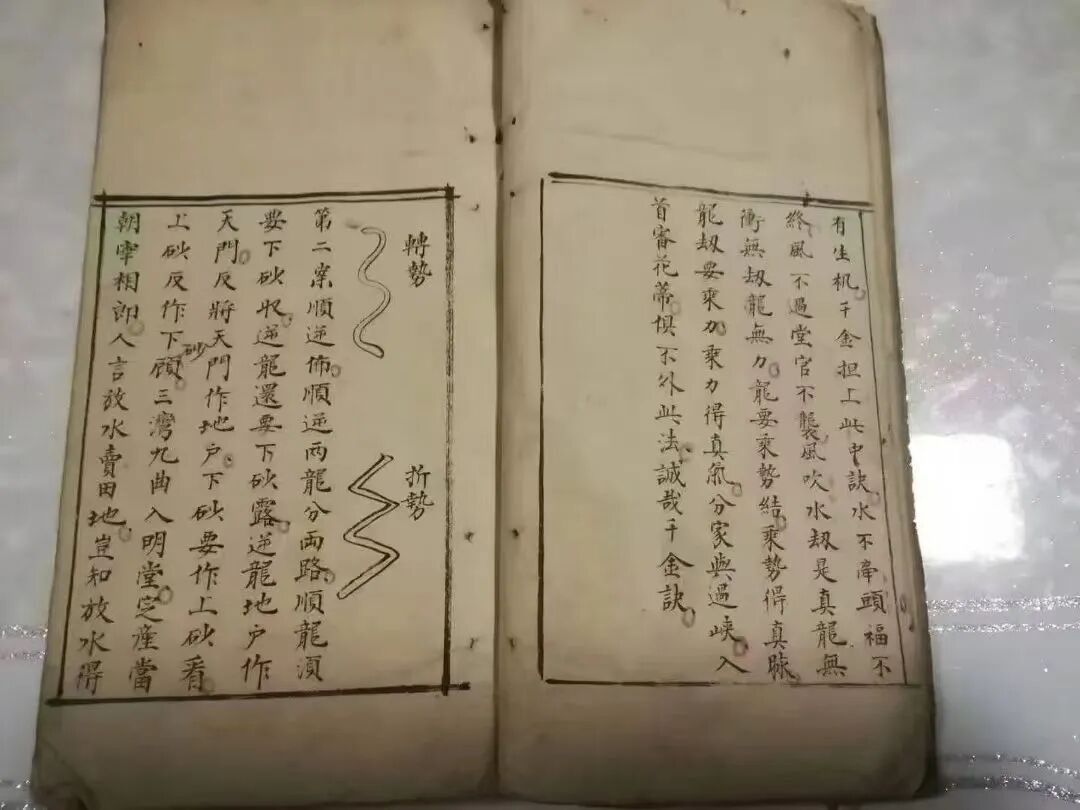 有生机千金担上此中訣水不牽頭福不
終風不過堂官不襲風吹水刼是真龍無
衝無刼龍無力龍要乘勢結乘勢得真脉
龍刼要乘力乘力得真氣分家與過峽入
首審花蒂俱不外此法誠哉千金訣
轉勢
折勢
第二案順逆佈順逆兩龍分兩路順龍須
要下砂收逆龍還要下砂露逆龍地户作
天門反將天門作地户下砂要作上砂看
上砂反作下砂顧三灣九曲入明堂定産當
朝宰相郎人言放水賣田地豈知放水得